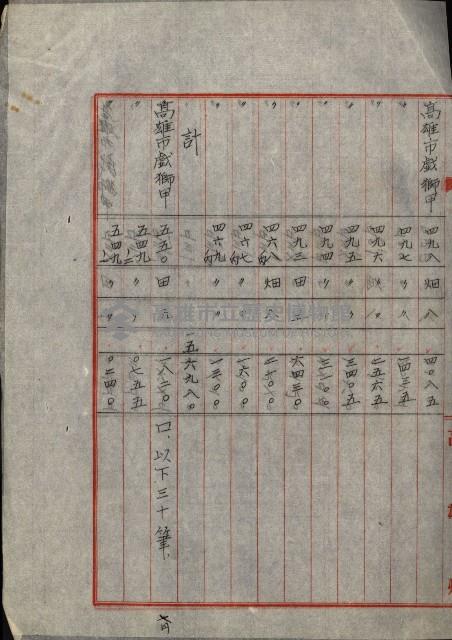 高雄市戲獅甲 四九八 畑 八 四〇八五
〃 四九七 〃 〃 一四三五
〃 四九六 〃 〃 二五六五
〃 四九五 〃 〃 三四〇五
〃 四九四 〃 〃 三二一〇
〃 四九三 田 六四三〇
〃 四六八 畑 二七〇〇
〃 四六七 〃 〃 一六〇〇
〃 四六九 〃 〃 一三〇〇
計 一五六九八〇
高雄市戲獅甲 五五〇 田 一八二〇 口、以下三十筆、
〃 五四九 〃 〃 〇七五五
〃 五四九 〃 〃 〇二四〇
高雄市立歷史博物館
高雄